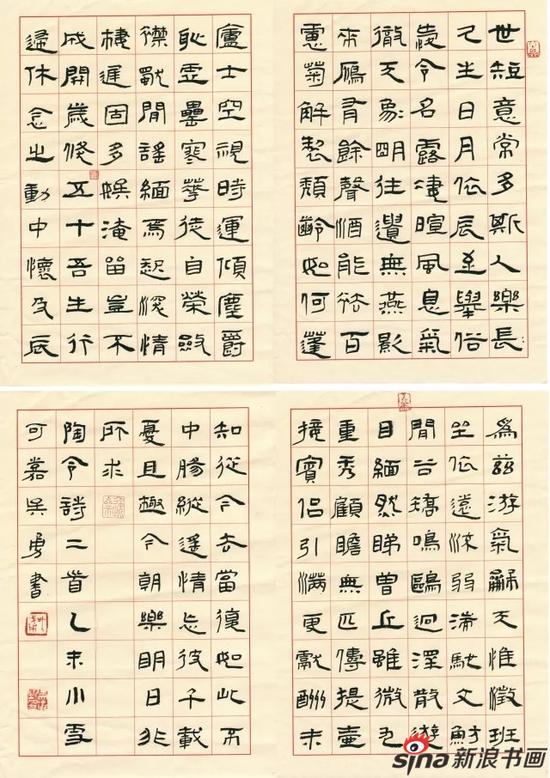 世短意常多斯人樂長
久生日月依辰至舉俗
愛令名露凄暄風息氣
徹天象明往遺無燕影
來鴈有餘聲酒能祛百
慮菊解製頹齡如何蓬
廬士空視時運傾塵爵
恥虛罍寒華徒自榮斂
襟獨閒謠緬焉起深情
棲遲固多娛淹留豈不
成開歲倐五十吾生行
歸休念之動中懷及辰
為茲游氣龢天惟澂班
坐依遠流弱湍馳文魴
閒谷矯鳴鷗迥澤散遊
目緬然睇曾丘雖微九
重秀顧瞻無匹儔提壺
接賓侶引滿更獻酬未
知從今去當復如此不
中觴縱遙情忘彼千載
憂且極今朝樂明日非
所求
陶令詩二首乙未小雪
可嘉吳勇書
sina 新浪书画